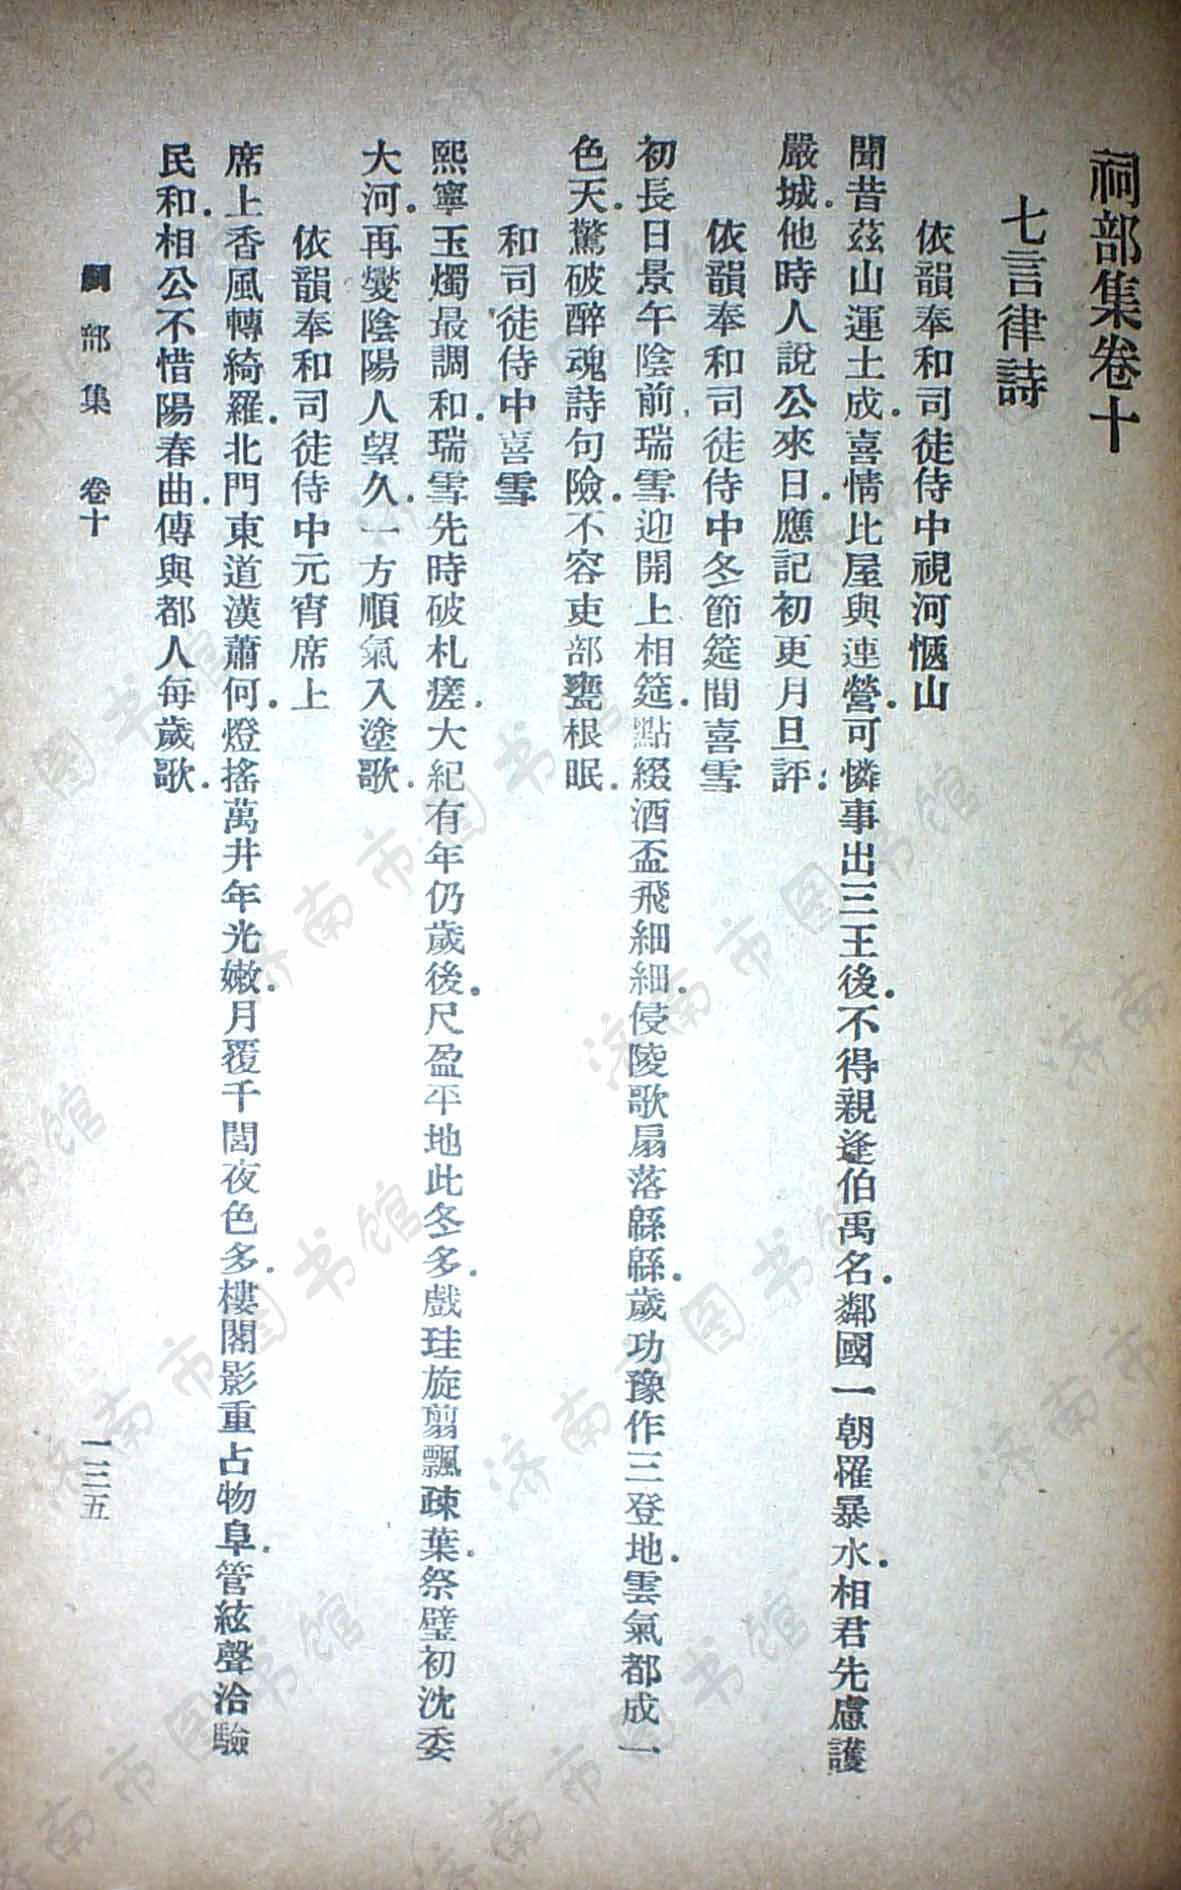 祠部集卷十
七言律詩
依韻奉和司徒侍中視河愜山
聞昔茲山運土成。喜情比屋與連營。可憐事出三王後。不得親逢伯禹名。鄰國一朝罹暴水。相君先慮護
嚴城。他時人說公來日。應記初更月旦評。
依韻奉和司徒侍中冬節筵間喜雪
初長日景午陰前。瑞雪迎開上相筵。點綴酒盃飛細細。侵陵歌扇落緜緜。歲功豫作三登地。雲氣都成一
色天。驚破醉魂詩句險。不容吏部甕根眠。
和司徒侍中喜雪
熙寧玉燭最調和。瑞雪先時破札瘥。大紀有年仍歲後。尺盈平地此冬多。戲珪旋剪飄疎葉。祭璧初沈委
大河。再燮陰陽人望久。一方順氣入塗歌。
依韻奉和司徒侍中元宵席上
席上香風轉綺羅。北門東道漢蕭何。燈搖萬井年光嫩。月覆千閭夜色多。樓閣影重占物阜。管絃聲洽驗
民和。相公不惜陽春曲。傳與都人每歲歌。
祠部集 卷十
一三五
济南市图书馆
济南市图书馆
济南市图书馆
济南市图书馆
济南市图书馆
济南市图书馆